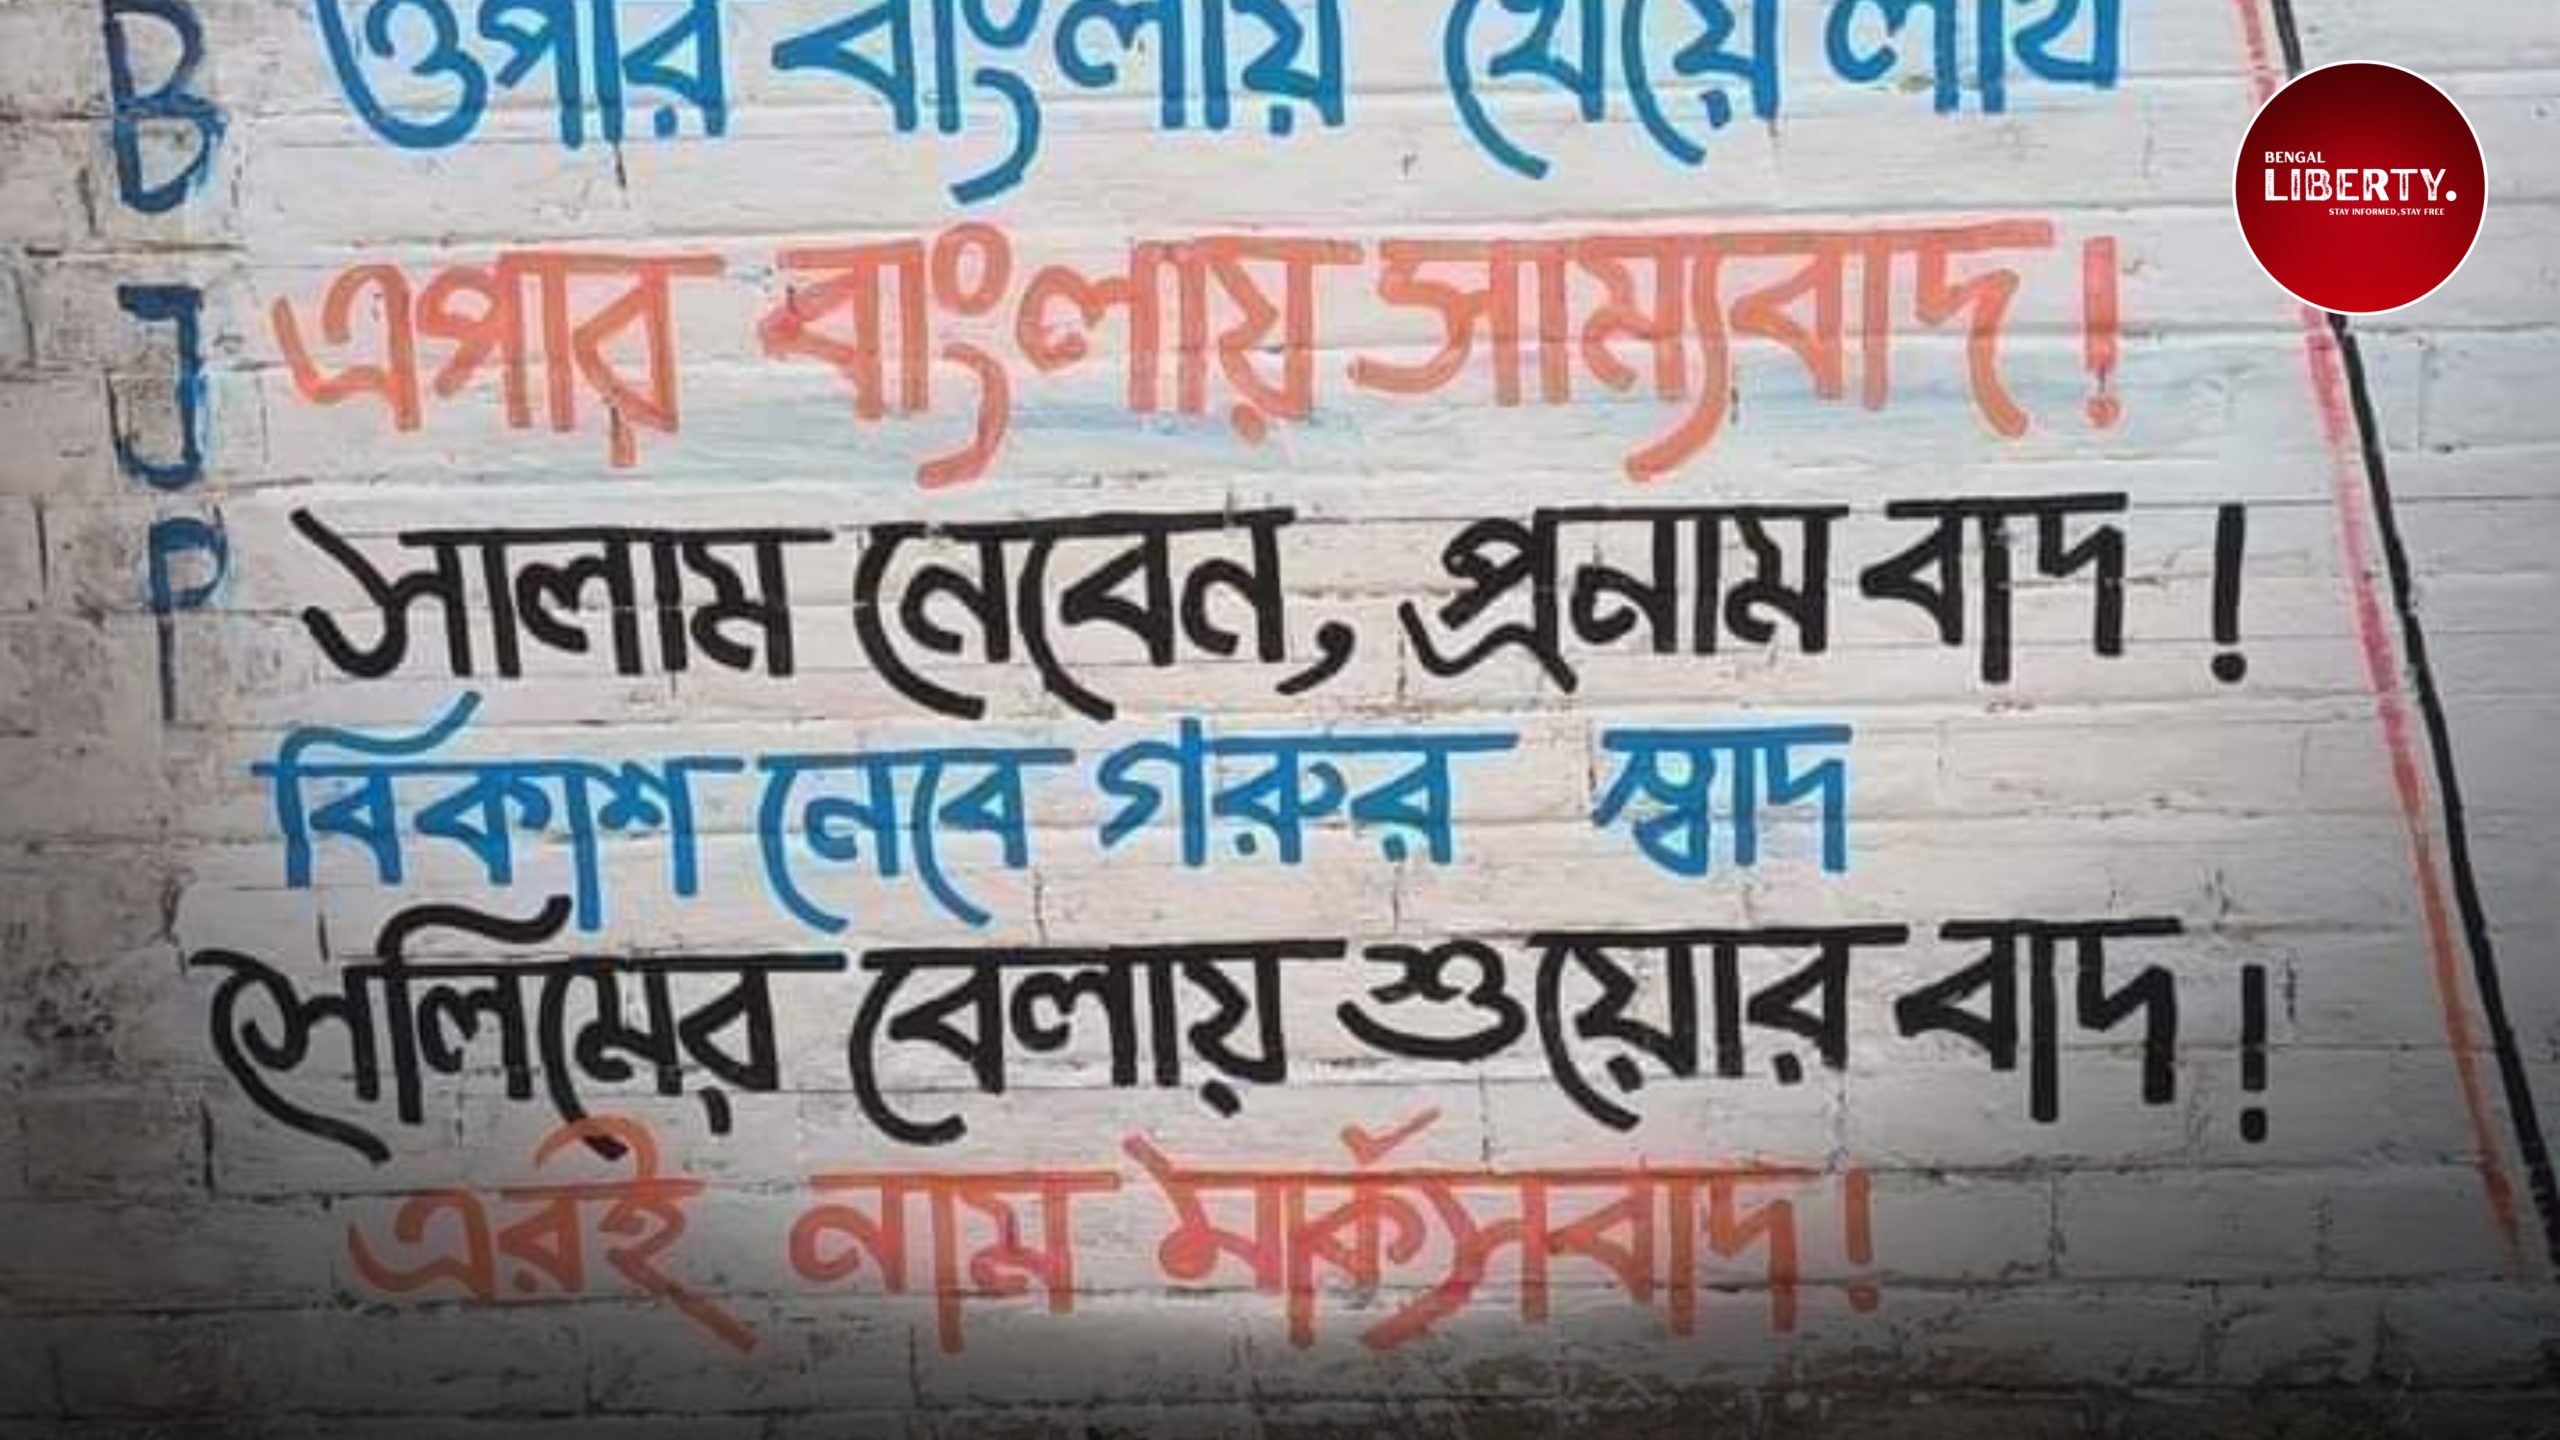 B
J
P
ওপার বাংলায় খেয়ে লাথ
এপার বাংলায় সাম্যবাদ!
সালাম নেবেন, প্রনাম বাদ!
বিকাশ নেবে গরুর স্বাদ
সেলিমের বেলায় শুয়োর বাদ!
এরই নাম মার্কসবাদ!
BENGAL
LIBERTY.
STAY INFORMED, STAY FREE